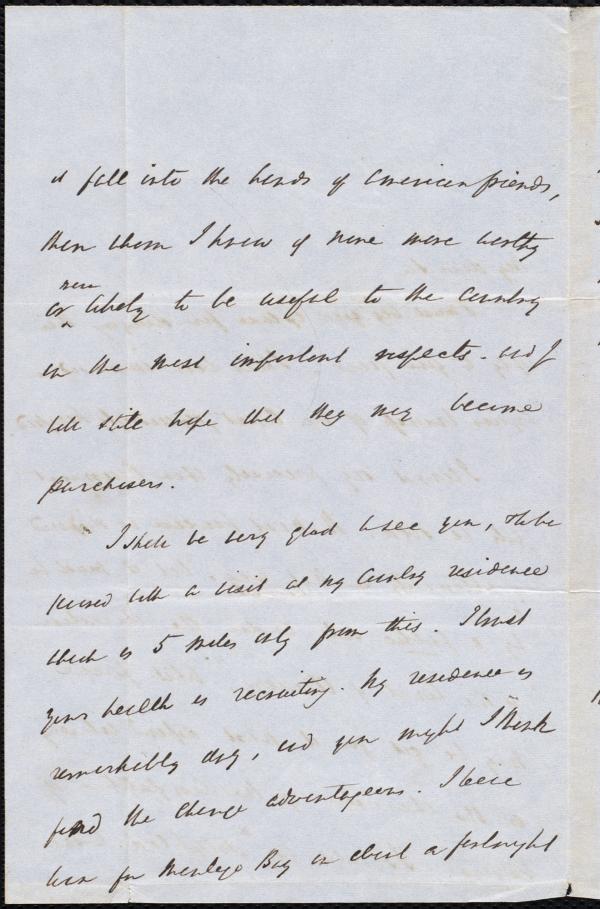 it fall into the hands of American friends,
than whom I know of none more worthy
or more likely to be useful to the Country
in the most important respects. and I
will still hope that they may become
purchasers.
" I shall be very glad to see you, & to be
favored with a visit at my Country residence
which is 5 miles only from this. I trust
your health is recruiting. My residence is
remarkably dry, and you might I think
find the change advantageous. I leave
here for Montego Bay in about a fortnight